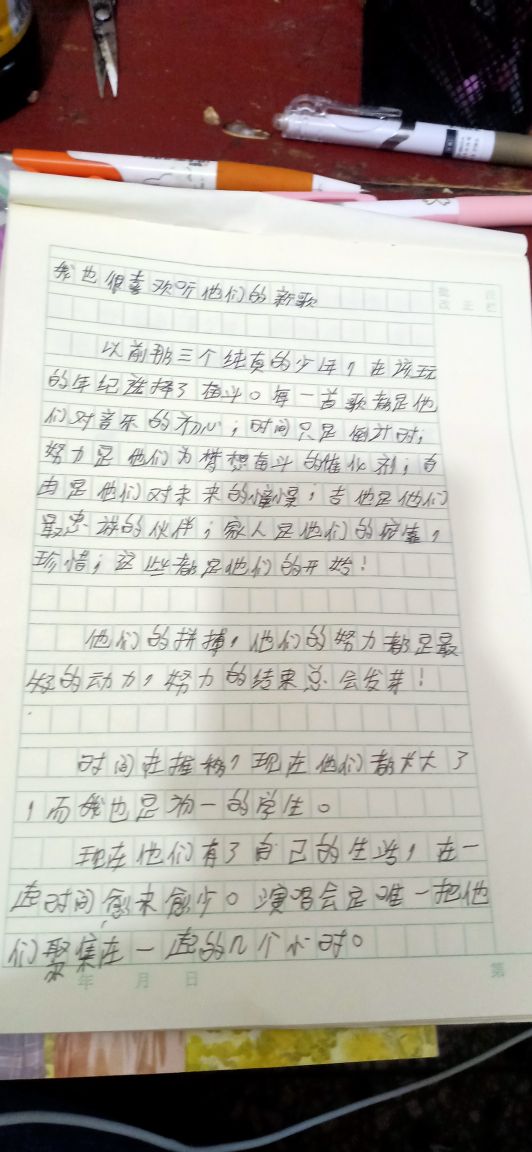 我也很喜欢听他们的新歌
以前那三个纯真的少年，在该玩
的年纪选择了奋斗。每一首歌都是他
们对音乐的初心；时间只是倒计时；
努力是他们为梦想奋斗的催化剂；自
由是他们对未来的憧憬，吉他是他们
最忠诚的伙伴；家人是他们的依靠，
珍惜；这些都是他们的开始！
他们的拼搏，他们的努力都是最
好的动力，努力的结果总会发芽！
时间在推移，现在他们都长大了
，而我也是初一的学生。
现在他们有了自己的生活，在一
起时间愈来愈少。演唱会是唯一把他
们聚集在一起的几个小时。
年 月 日
第